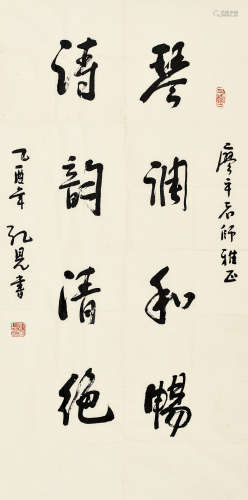 廖辛老师雅正
琴调和畅
诗韵清绝
乙酉年 孔见书